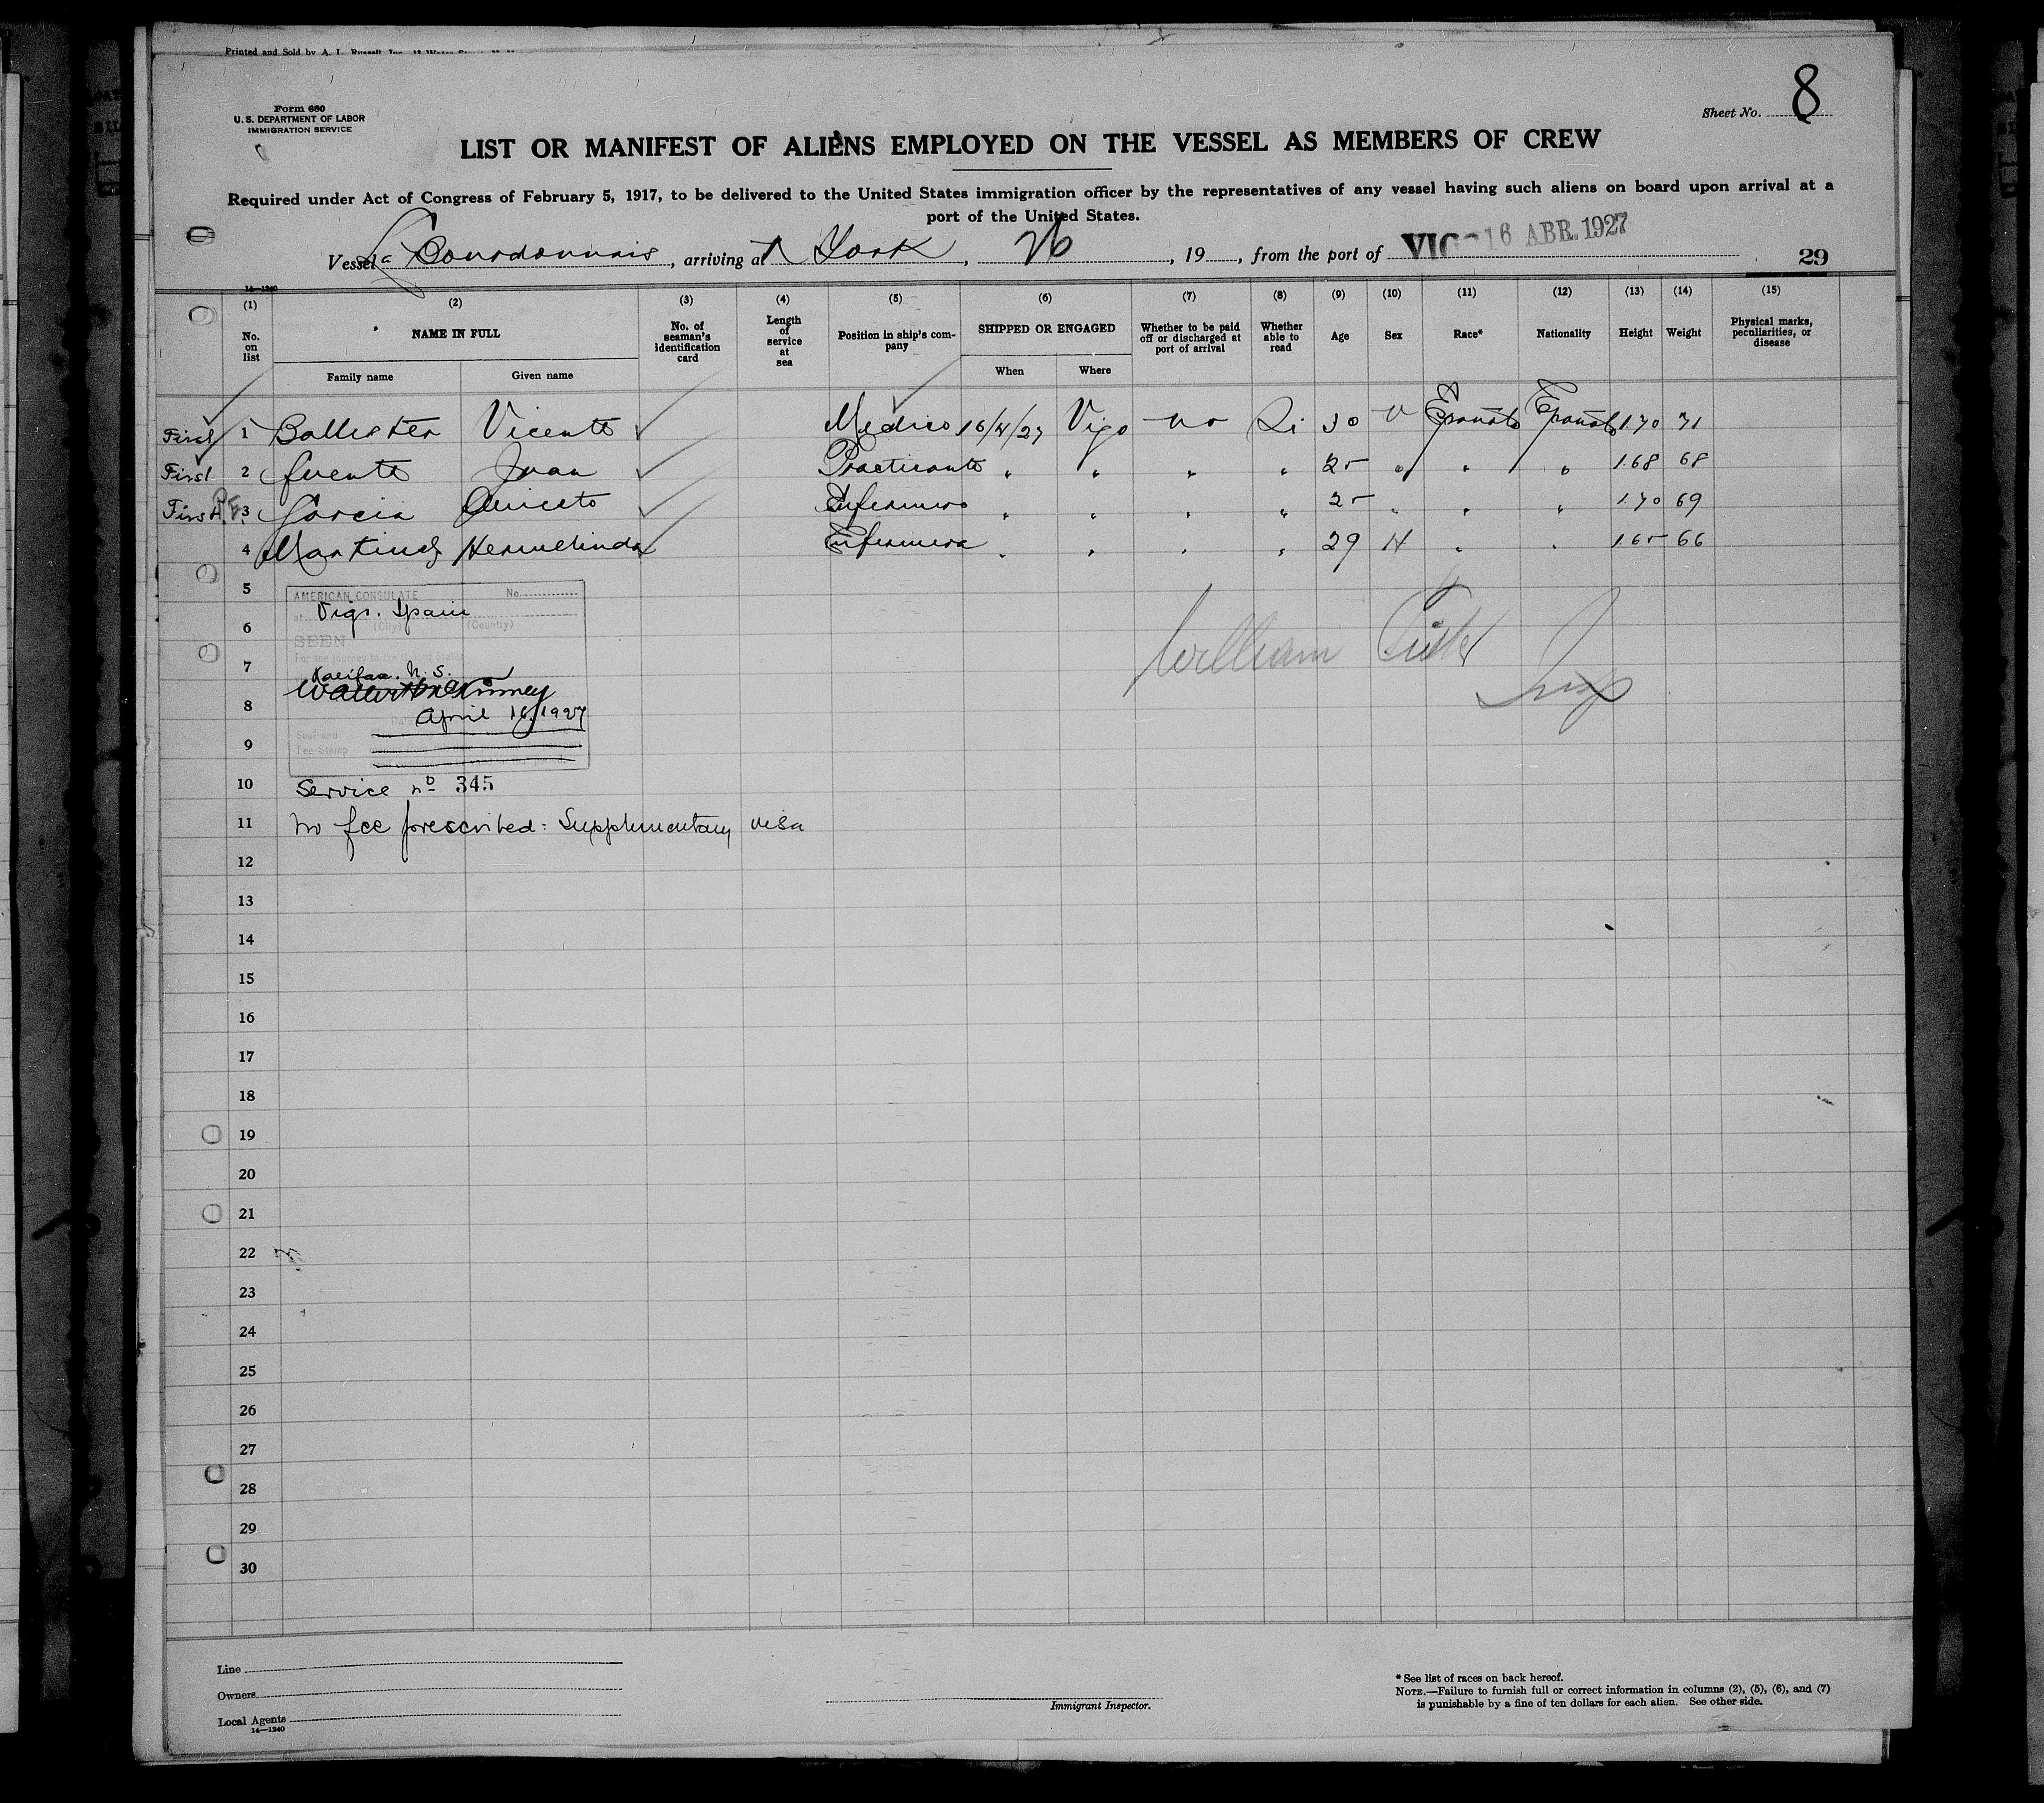 Printed and Sold by A. L. Russell, Inc.
Form 680
U. S. DEPARTMENT OF LABOR
IMMIGRATION SERVICE
Sheet No. 8
LIST OR MANIFEST OF ALIENS EMPLOYED ON THE VESSEL AS MEMBERS OF CREW
Required under Act of Congress of February 5, 1917, to be delivered to the United States immigration officer by the representatives of any vessel having such aliens on board upon arrival at a
port of the United States.
Vessel La Bourdonnais, arriving at N York, 26, 19, from the port of VIGO 16 ABR. 1927
29
14—1240
(1) (2) (3) (4) (5) (6) (7) (8) (9) (10) (11) (12) (13) (14) (15)
No. on list NAME IN FULL No. of seaman's identification card Length of service at sea Position in ship's company SHIPPED OR ENGAGED Whether to be paid off or discharged at port of arrival Whether able to read Age Sex Race* Nationality Height Weight Physical marks, peculiarities, or disease
Family name Given name When Where
First 1 Ballester Vicente Medico 16/4/27 Vigo no Si 30 V Español Español 1.70 71
First 2 fuente Juan Practicante " " " " 25 " " " 1.68 68
First 3 Garcia Aniceto Enfermero " " " " 25 " " " 1.70 69
4 Martinez Hermelinda Enfermera " " " " 29 H " " 1.65 66
5
AMERICAN CONSULATE No.
at Vigo. Spain
6
(City) (Country)
SEEN
For one journey to the United States
7
Halifax. N. S.
William
8
April 16, 1927
Seal and
9
Fee Stamp
10 Service nº 345
11 No fee prescribed: Supplementary visa
12
13
14
15
16
17
18
19
20
21
22
23
24
25
26
27
28
29
30
Line
Owners
Local Agents
14—1240
Immigrant Inspector.
* See list of races on back hereof.
NOTE.—Failure to furnish full or correct information in columns (2), (5), (6), and (7)
is punishable by a fine of ten dollars for each alien. See other side.